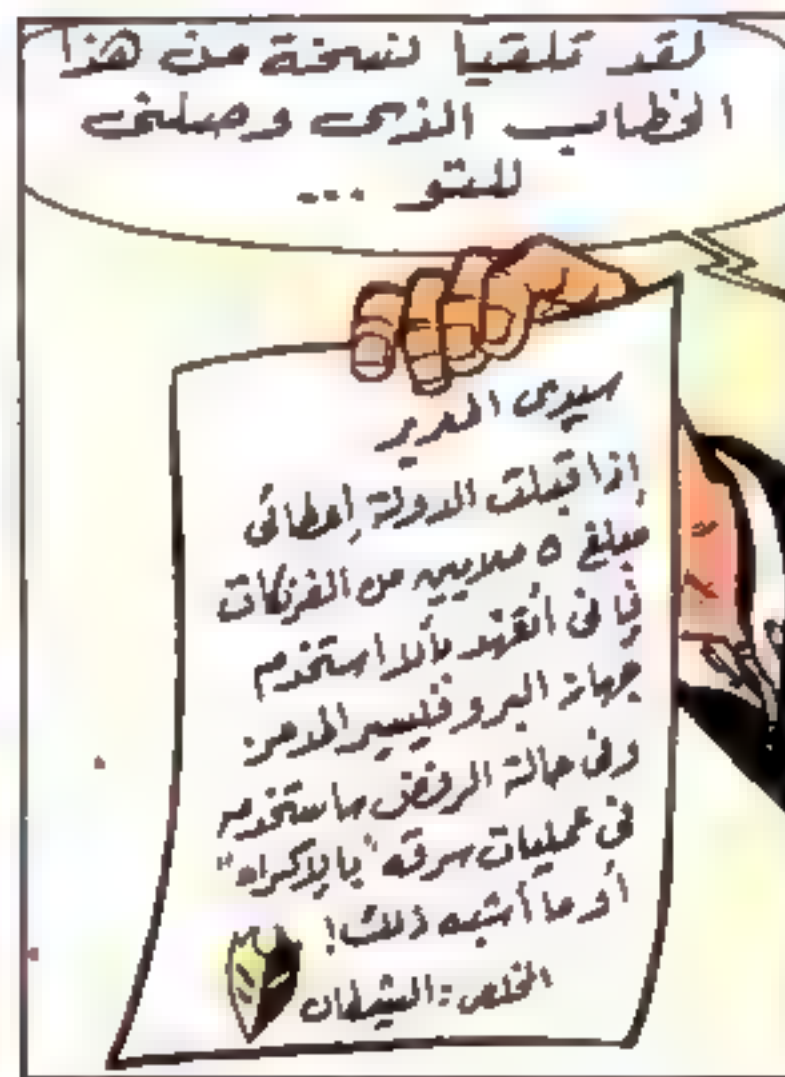 لقد تلقيا نسخة من هذا
الخطاب الذى وصلنى
للتو ...
سيدى المدير
إذا قبلت الدولة إعطائى
مبلغ ٥ ملايين من الفرنكات
فإنى أتعهد بألا استخدم
جهاز البروفيسير المدمر
وفى حالة الرفض سأستخدمه
فى عمليات سرقه "بالإكراه"
أو ما أشبه ذلك!
المخلص : الشيطان